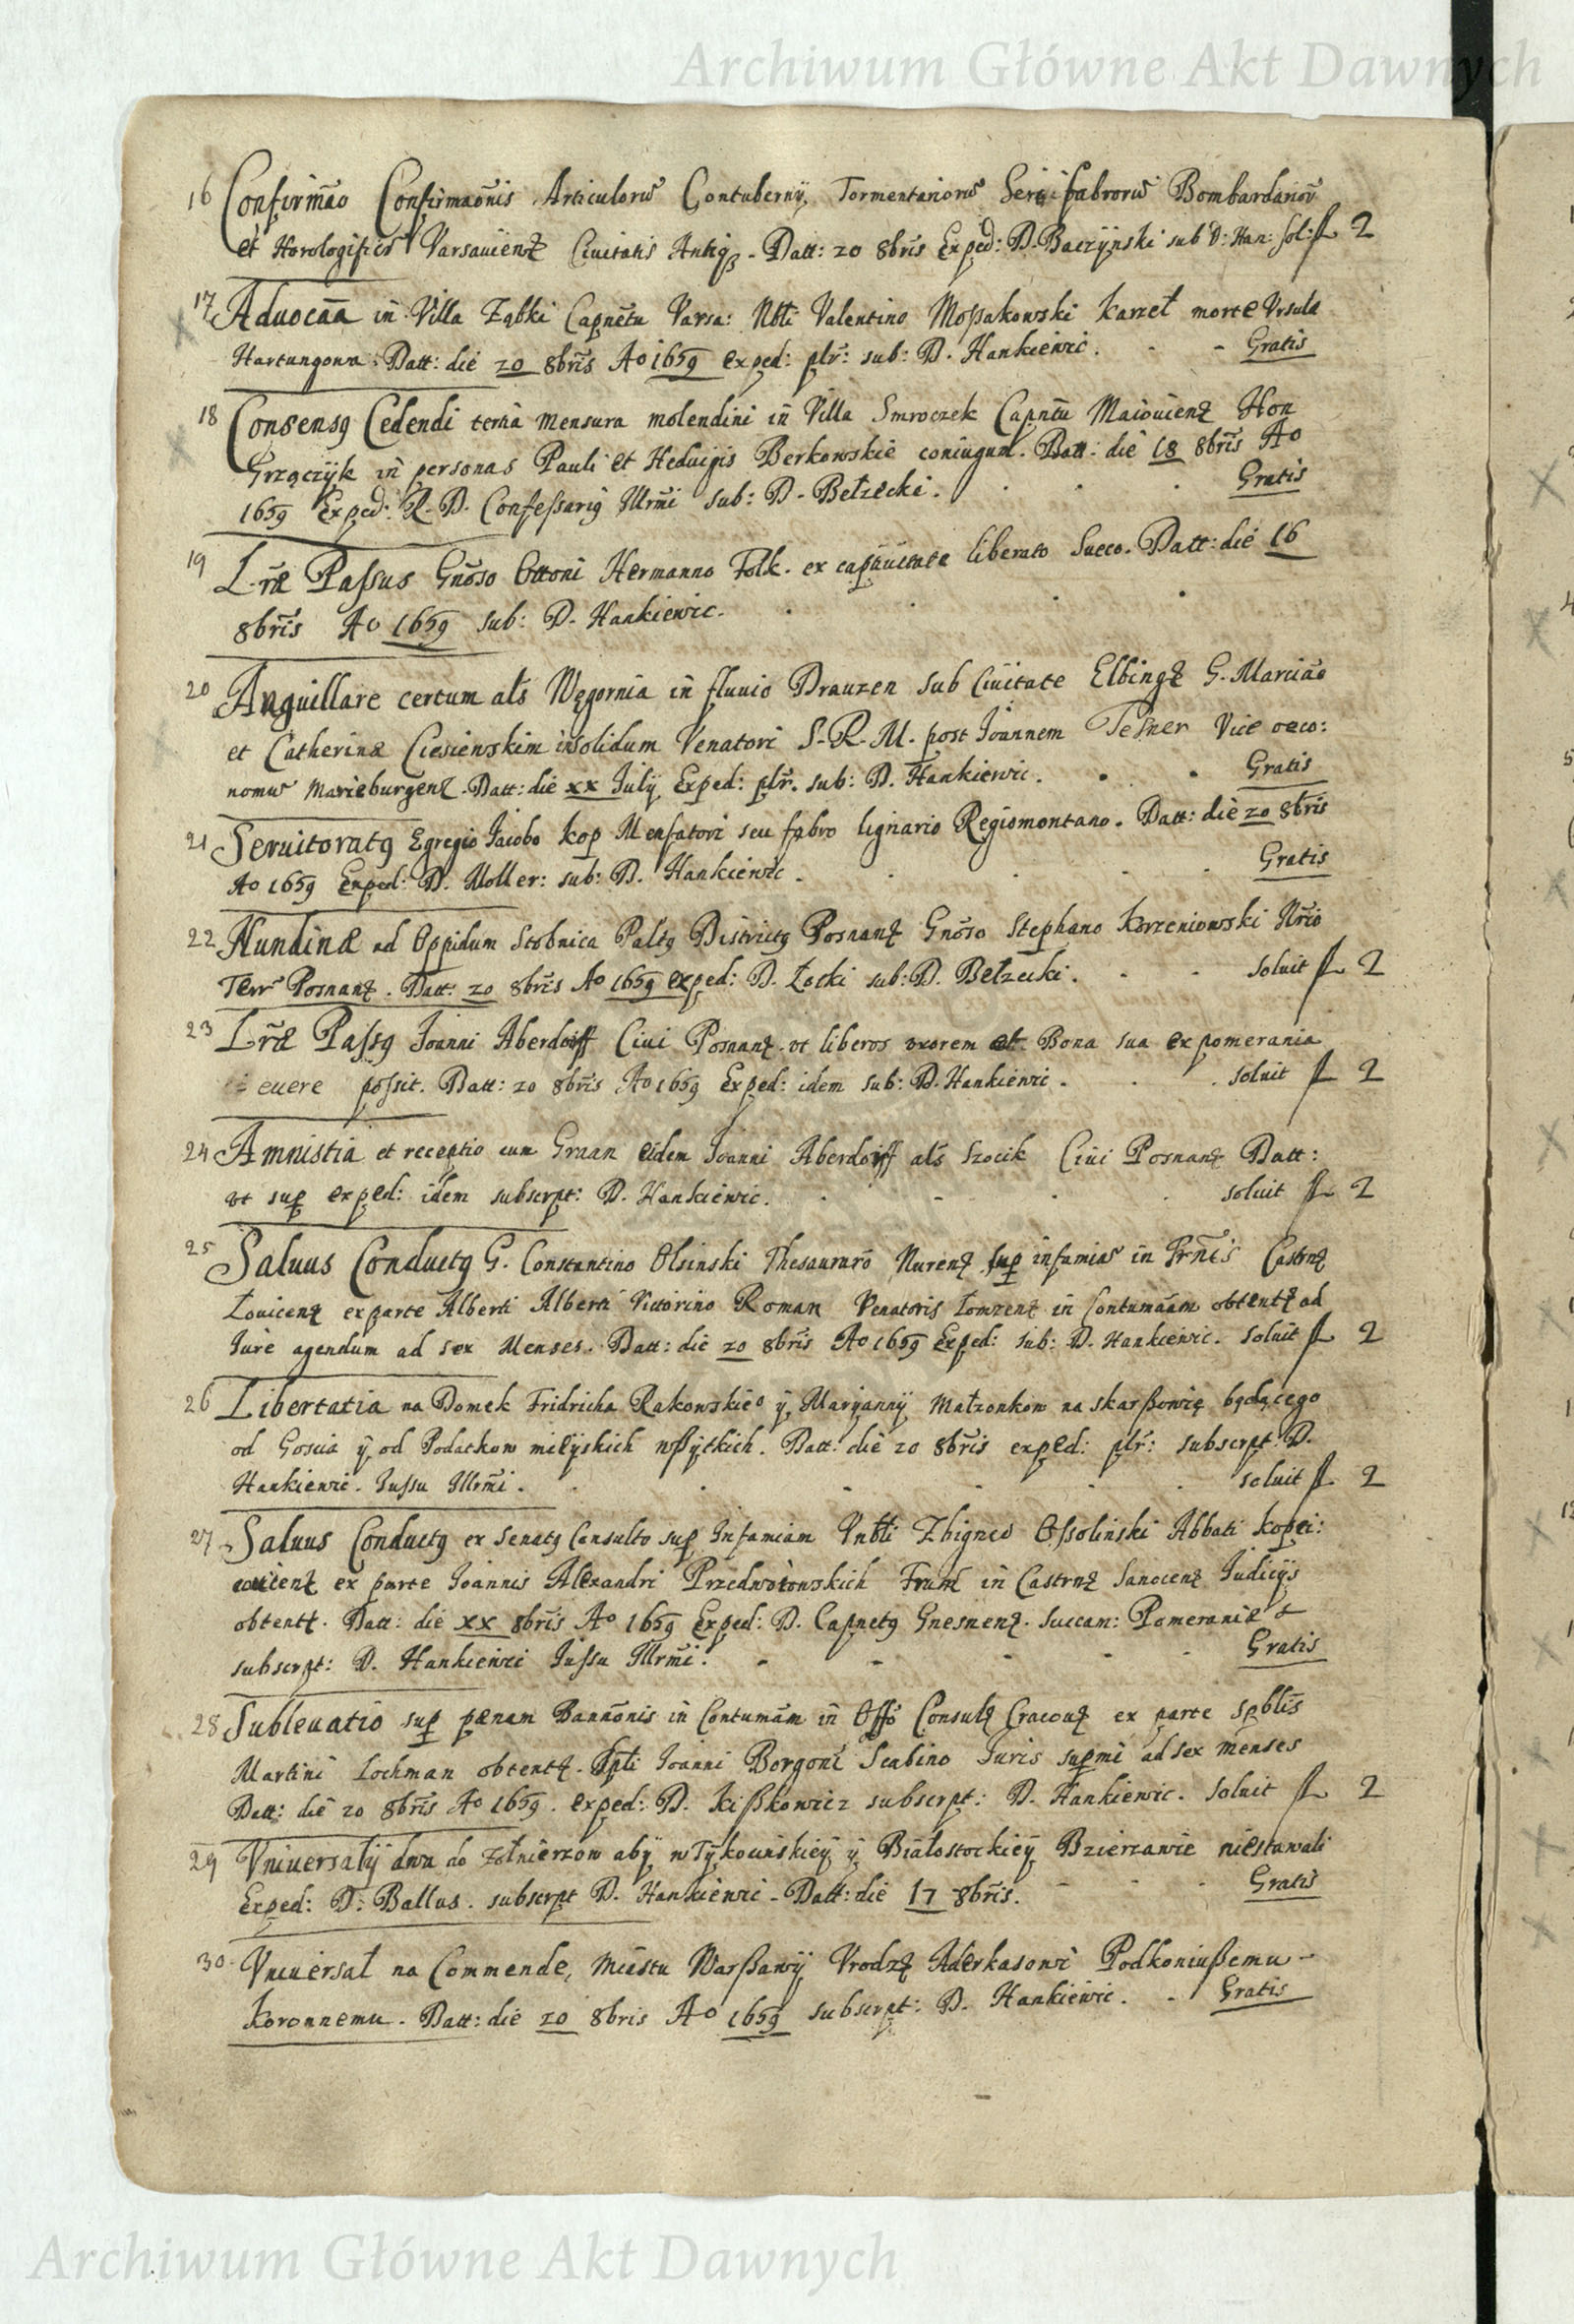 Archiwum Główne Akt Dawnych
16 Confirmao Confirmaonis Articuloru Contubernÿ Tormentarioru Serifabroru Bombardarioru
et Horologificu Varsauienȝ Ciuitatis Antiqȝ - Datt: 20 8bris Exped: D. Baczÿnski sub D: Han: sol: fl 2
17 Aduocãa in Villa Ząbki Capnẽtu Varsa: Nbli Valentino Moßakowski karzeł morte Vrsula
Hartungowa. Datt: die 20 8bris Ao 1659 exped: plr: sub: D. Hankiewic. - - Gratis
18 Consensq Cedendi tertia mensura molendini in Villa Smroczek Capntu Maiouienȝ Hon
Grzączÿk in personas Pauli et Heduigis Berkowskie coniugum. Datt: die 18 8bris Ao
1659 Exped: R. D. Confeßariq Illrmi sub: D. Bełzecki. Gratis
19 Lræ Paßus Gnõso Ottoni Hermanno Folk. ex captiuitate liberato Sueco. Datt: die 16
8bris Ao 1659 sub: D. Hankiewic.
20 Anguillare certum als Węgornia in fluuio Drauzen sub Ciuitate Elbingȝ G. Marcião
et Catherinæ Ciesienskim insolidum Venatori S. R. M. post Joannem Teßner Vice oeco:
nomu Marieburgenȝ. Datt: die xx Julÿ Exped: plr. sub: D. Hankiewic. Gratis
21 Seruitoratq Egregio Jacobo kop Mensatori seu fabro lignario Regiomontano. Datt: die 20 8bris
Ao 1659 Exped: D. Moller: sub: D. Hankiewic - Gratis
22 Nundinæ ad Oppidum Stobnica Paltq Districtq Posnanȝ Gnõso Stephano korzeniowski Nrio
Terr Posnanȝ. Datt: 20 8bris Ao 1659 exped: D. Łocki sub: D. Bełzecki. - - Soluit fl 2
23 Lræ Paßq Joanni Aberdoiff Ciui Posnanȝ. vt liberos vxorem et Bona sua ex pomerania
euere poßit. Datt: 20 8bris Ao 1659 Exped: idem sub: D. Hankiewic. Soluit fl 2
24 Amnistia et receptio eidem Joanni Aberdoiff als Szocik Ciui Posnanȝ Datt:
vt sup exped: idem subscrpt: D. Hankiewic. Soluit fl 2
25 Saluus Conductq G. Constantino Olsinski Thesauraro Nurenȝ sup infamia in Prnis Castrnȝ
Łouicenȝ ex parte Alberti Alberti Victorino Roman Venatoris Łomzenȝ in Contumãam obtentȝ ad
Jure agendum ad sex Menses. Datt: die 20 8bris Ao 1659 Exped: sub: D. Hankiewic. Soluit fl 2
26 Libertatia na Domek Fridricha Rakowskieo ÿ Marÿannÿ Małzonkow na skarßowię będącego
od Goscia ÿ od Podatkow mieÿskich wßÿtkich. Datt: die 20 8bris exped: plr: subscrpt: D.
Hankiewic. Jußu Illrmi. Soluit fl 2
27 Saluus Conductq ex Senatq Consulto sup Infamiam Vnbli Zbigneo Oßolinski Abbati kopri:
ex parte Joannis Alexandri Przedwoiowskich in Castrnȝ Sanocenȝ Judicÿs
obtentȝ. Datt: die xx 8bris Ao 1659 Exped: D. Capnetq Gnesnenȝ. Succam: Pomeraniæ &
subscrpt: D. Hankiewic Jußu Illrmi. - - - - Gratis
28 Subleuatio sup pænam Bannonis in Contumãm in Offo Consulȝ Cracouȝ ex parte spblis
Martini Lochman obtentȝ. Spli Joanni Borgoni Scabino Juris supmi ad sex menses
Datt: die 20 8bris Ao 1659. exped: D. kißkowicz subscrpt: D. Hankiewic. Soluit fl 2
29 Vniuersałÿ dwa do Żołnierzow abÿ w Tÿkocinskieÿ ÿ Białostockieÿ Dzierzawie niestawali
Exped: D: Ballus. subscrpt D. Hankiewic - Datt: die 17 8bris. - - Gratis
30 Vniuersał na Commende, Miastu Warßawÿ Vrodzȝ Aderkasowi Podkoniußemu -
koronnemu. Datt: die 20 8bris Ao 1659 subscrpt: D. Hankiewic. - Gratis
Archiwum Główne Akt Dawnych